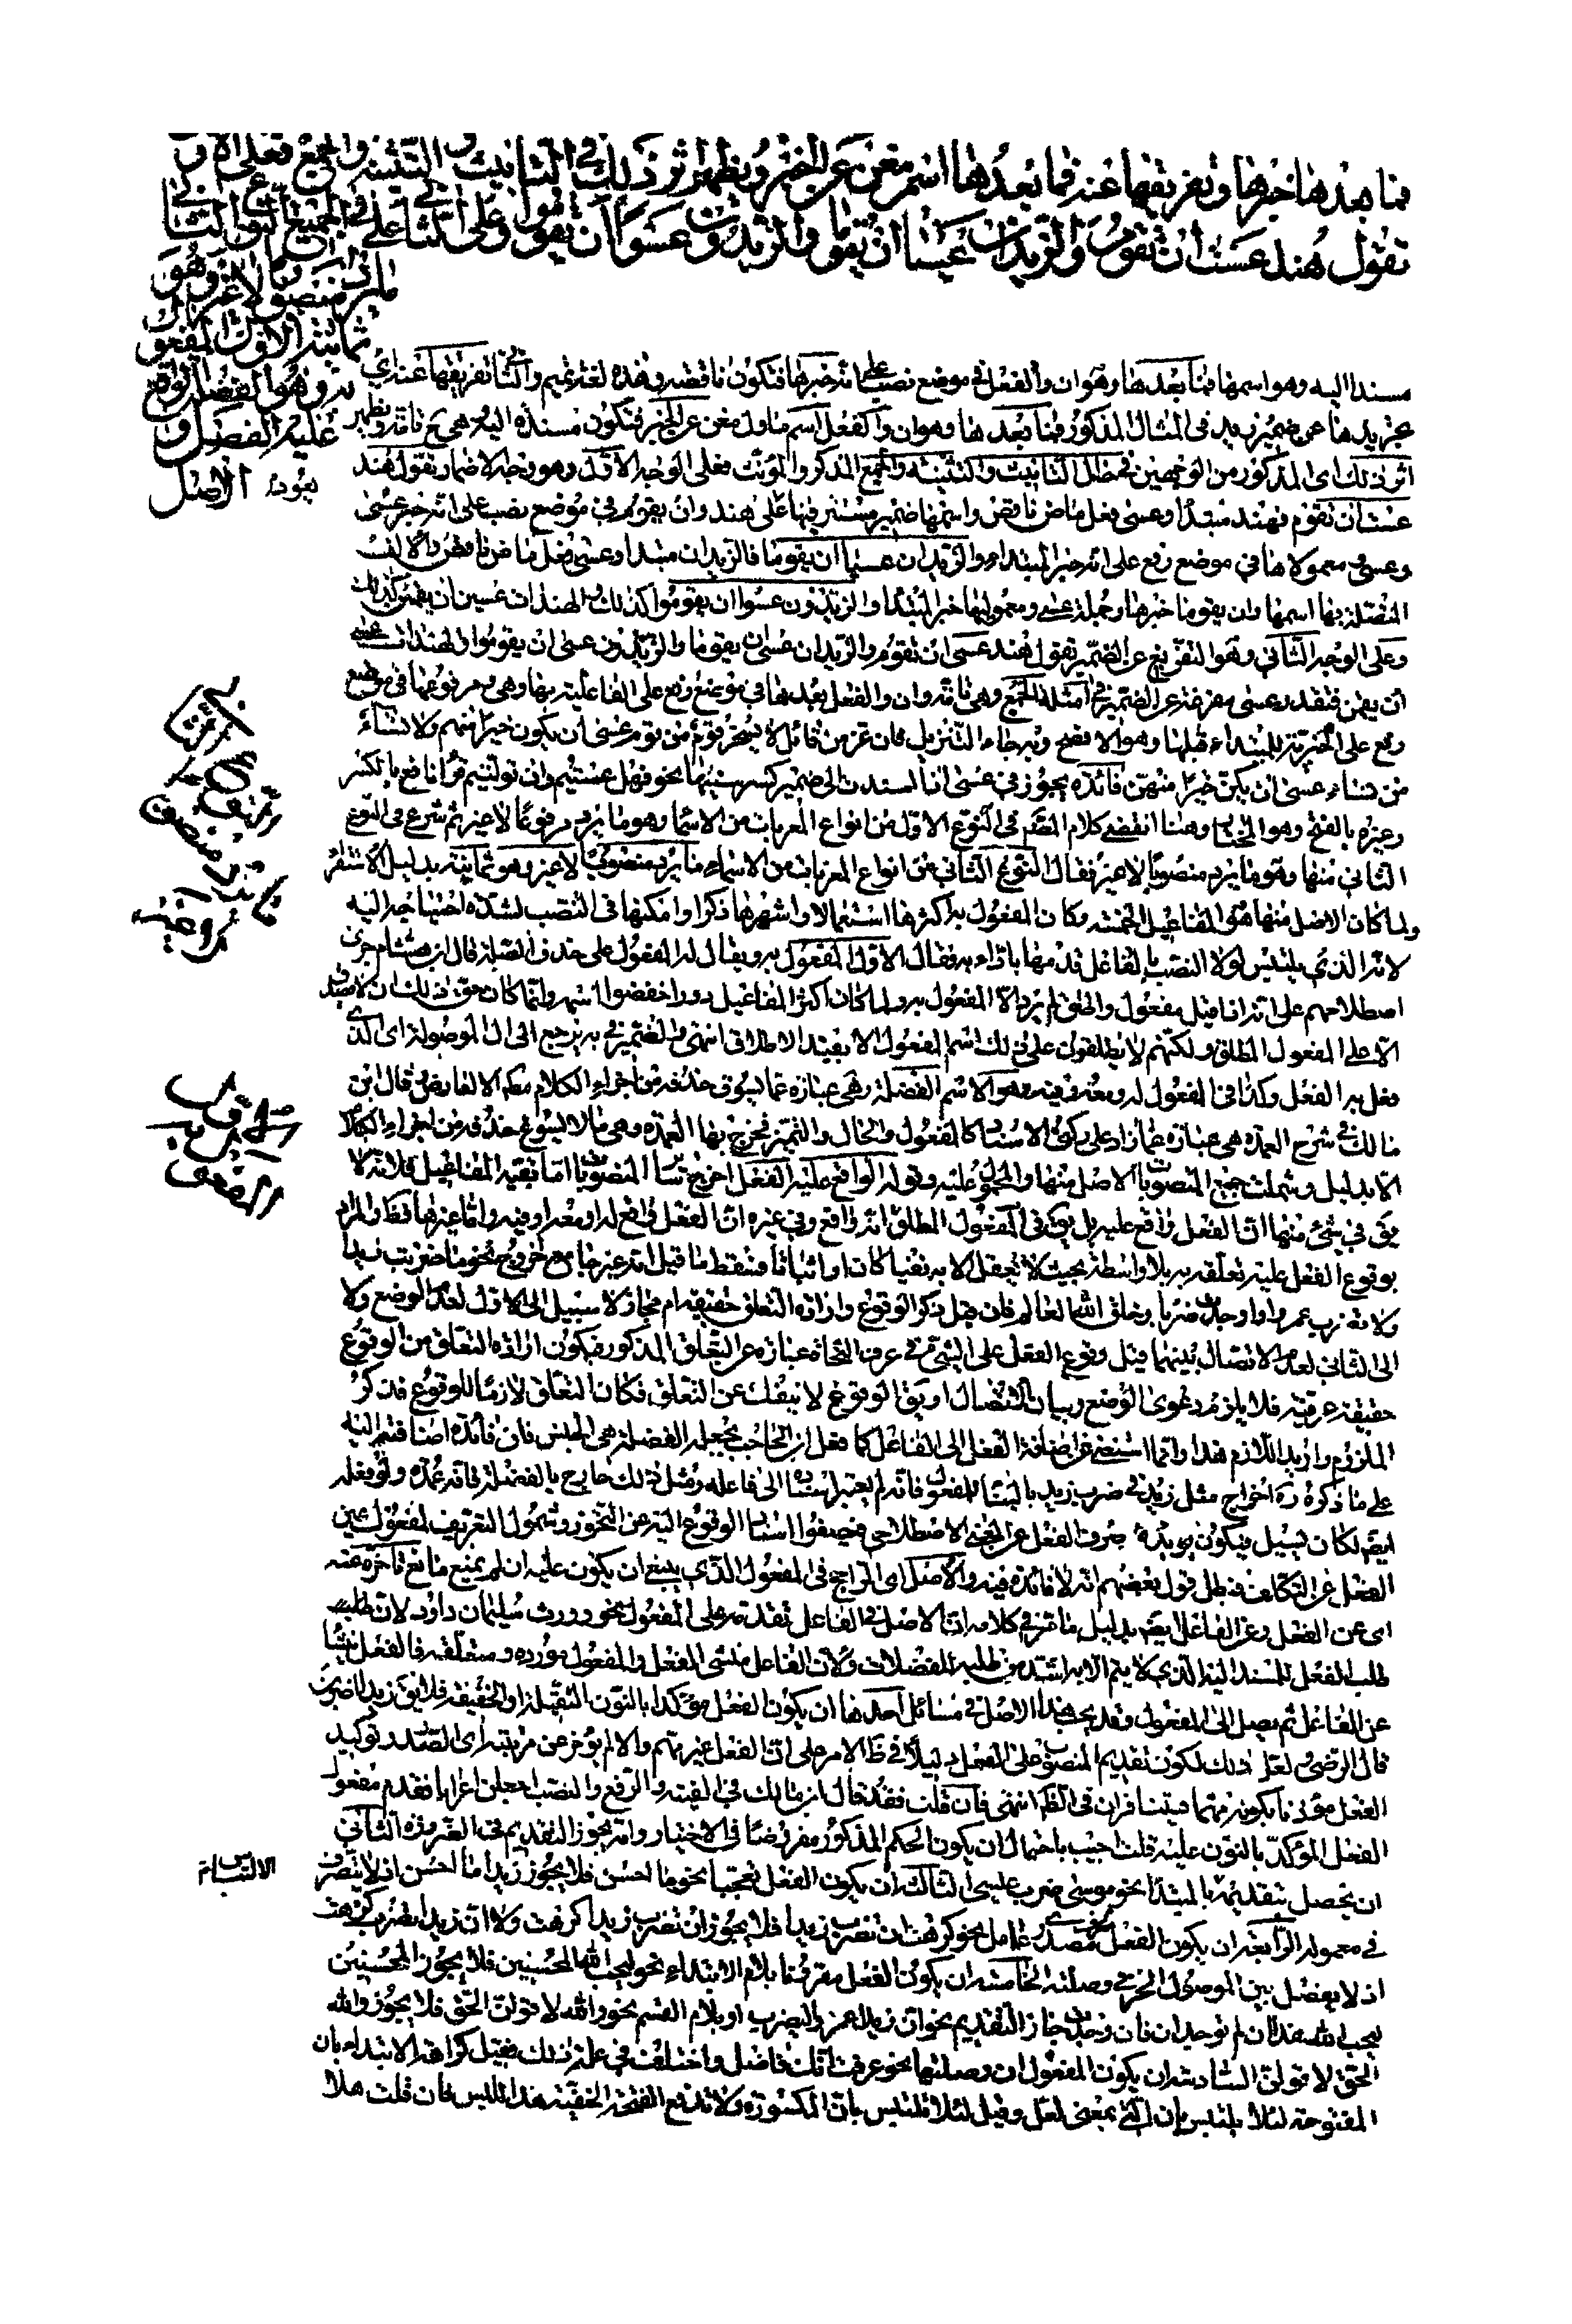 فما بعدها خبرها وتفريغها عنه فما بعدها اسم مغن عن الخبر ويظهر اثر ذلك في التانيث والتثنية والجمع فعلى الاول
تقول هند عست ان تقوم والزيدان عسيا ان يقوما والزيدون عسوا ان يقوموا وعلى الثاني عسى في الجميع النوع الثاني
ما يرد منصوبا لا غير وهو
ثمانية الاول المفعول
به وهو الفضلة الواقع
عليه الفعل و
الاصل
مسندا اليه وهو اسمها فما بعدها وهو ان والفعل في موضع نصب على انه خبرها فتكون ناقصة وهذه لغة تميم والثاني تفريغها عنه اي
تجريدها عن ضمير زيد في المثال المذكور فما بعدها وهو ان والفعل اسم ماول مغن عن الخبر فتكون مسندة اليه وهي ح تامة ويظهر
اثر ذلك اي المذكور من الوجهين في حال التانيث والتثنية والجمع المذكر والمؤنث فعلى الوجه الاول وهو وجه الاضمار تقول هند
عست ان تقوم فهند مبتدا وعسى فعل ماض ناقص واسمها ضمير مستتر فيها على هند وان يقوم في موضع نصب على انه خبر عسى
وعسى ومعمولاها في موضع رفع على انه خبر المبتداء والزيدان عسيا ان يقوما فالزيدان مبتدا وعسى فعل ماض ناقص والالف
المتصلة بها اسمها وان يقوما خبرها وجملة عسى ومعموليها خبر المبتدا والزيدون عسوا ان يقوموا كذلك والهندات عسين ان يقمن كذلك
وعلى الوجه الثاني وهو التفريغ عن الضمير تقول هند عسى ان تقوم والزيدان عسى ان يقوما والزيدون عسى ان يقوموا والهندات عسى
ان يقمن فتقدر عسى مفرغة عن الضمير في امثلة الجمع وهي تامة وان والفعل بعدها في موضع رفع على الفاعلية بها وهي ومرفوعها في موضع
رفع على الخبرية للمبتداء قبلها وهو الافصح وبه جاء التنزيل فان عز من قائل لا يسخر قوم من قوم عسى ان يكونوا خيرا منهم ولا نساء
من نساء عسى ان يكن خيرا منهن فائدة يجوز في عسى اذا اسندت الى ضمير كسر سينها نحو فهل عسيتم وان توليتم قرا نافع بالكسر
وغيره بالفتح وهو المختار وهنا انقضى كلام المصنف في النوع الاول من انواع المعربات من الاسماء وهو ما يرد مرفوعا لا غير ثم شرع في النوع
الثاني منها وهو ما يرد منصوبا لا غير فقال النوع الثاني من انواع المعربات من الاسماء ما يرد منصوبا لا غير وهو ثمانية بدليل الاستقراء
ولما كان الاصل منها هي المفاعيل الخمسة وكان المفعول به اكثرها استعمالا واشهرها ذكرا وامكنها في النصب لشدة احتياجه اليه
لانه الذي يلتبس لولا النصب بالفاعل قدمها بادئا به فقال الاول المفعول به ويقال له المفعول على حذف الصلة قال ابن هشام جرى
اصطلاحهم على انه اذا قيل مفعول واطلق لم يرد الا المفعول به ولما كان اكثر المفاعيل دورا خفضوا اسمه وانما كان حق ذلك ان لا يصدق
الا على المفعول المطلق ولكنهم لا يطلقون على ذلك اسم المفعول الا بقيد الاطلاق انتهى والضمير في به يرجع الى ال الموصولة اي الذي
فعل به الفعل وكذا في المفعول له ومعه وفيه وهو الاسم الفضلة وهي عبارة عما يسوغ حذفه من اجزاء الكلام مطلقا الا لعارض قال ابن
مالك في شرح العمدة هي عبارة عما زاد على ركني الاسناد كالمفعول والحال والتمييز فخرج بها العمدة وهي ما لا يسوغ حذفه من اجزاء الكلام
الا بدليل وشملت جميع المنصوبات الاصل منها والمحمول عليه وقوله الواقع عليه الفعل اخرج سائر المنصوبات اما بقية المفاعيل فلانه لا
يق في شيء منها ان الفعل واقع عليه بل يق في المفعول المطلق انه واقع وفي غيره ان الفعل واقع له او معه او فيه واما غيرها فظ والمراد
بوقوع الفعل عليه تعلقه به بلا واسطة بحيث لا يعقل الا به نفيا كان او اثباتا فسقط ما قيل انه غير جامع خروج نحو ما ضربت زيدا
ولا تضرب عمروا واوجدت ضربا وخلق الله العالم فان قيل ذكر الوقوع وارادة التعلق حقيقة ام مجاز لا سبيل الى الاول لعدم الوضع ولا
الى الثاني لعدم الاتصال بينهما قيل وقوع الفعل على الشيء في عرف النحاة عبارة عن التعلق المذكور فيكون ارادة التعلق من الوقوع
حقيقة عرفية فلا يلزم دعوى الوضع وبيان الاتصال او يق الوقوع لا ينفك عن التعلق فكان التعلق لازما للوقوع فذكر
الملزوم واريد اللازم هذا وانما استغنى عن اضافة الفعل الى الفاعل كما فعل ابن الحاجب بجعله الفضلة هي الجنس فان فائدة اضافته اليه
على ما ذكروه اخراج مثل زيد في ضرب زيد بالبناء للمفعول فانه لم يعتبر اسناده الى فاعله ومثل ذلك خارج بالفضلة فانه عمدة ولو فعله
ايضا لكان لسبيل فيكون
الفعل عن التكلف فبطل قول بعضهم انه لا فائدة فيه والاصل اي الراجح في المفعول الذي ينبغي ان يكون عليه ان لم يمنع مانع تاخره عنه
اي عن الفعل وعن الفاعل ايضا بدليل ما مر في كلامه ان الاصل في الفاعل تقدمه على المفعول نحو وورث سليمان داود لان طلبه
طلب الفعل للمسند اليه الذي لا يتم الا به اشد من طلبه الفضلات ولان الفاعل منشئ الفعل والمفعول مورده ومتعلقه فالفعل ينشا
عن الفاعل ثم يصل الى المفعول وقد يجب هذا الاصل في مسائل احدها ان يكون الفعل مؤكدا بالنون الثقيلة او الخفيفة فلا يق زيدا اضربن
قال الرضي لعل ذلك لكون تقديم المنصوب على الفعل دليلا في ظاهر الامر على ان الفعل غير مهم والا لم يؤخر عن مرتبته اي الصدر وتوكيد
الفعل مؤذن بكونه مهما فيتنافران في الظاهر انتهى فان قلت فقد قال ابن مالك في الفيته والرفع والنصب اجعلن اعرابا فقدم مفعول
الفعل المؤكد بالنون عليه قلت اجيب باحتمال ان يكون الحكم المذكور مفروضا في الاختيار وانه يجوز التقديم في الضرورة الثاني
ان يحصل بتقديمه بالمبتدا نحو موسى ضرب عيسى الثالث ان يكون الفعل تعجبا نحو ما احسن فلا يجوز زيدا ما احسن اذ لا يتصرف
الالتباس
في معموله الرابعة ان يكون الفعل مصدر عامل نحو كرهت ان تضرب زيدا فلا يجوز ان تضرب زيدا كرهت ولا ان زيدا تضرب كرهت
اذ لا يفصل بين الموصول الحرفي وصلته الخامسة ان يكون الفعل مقرونا بلام الابتداء نحو ليحب الله المحسنين فلا يجوز المحسنين
ليحب الله هذا ان لم توجد ان فان وجدت جاز التقديم نحو ان زيدا عمروا ليضرب او بلام القسم نحو والله لاقولن الحق فلا يجوز والله
الحق لاقولن السادسة ان يكون المفعول ان وصلتها نحو عرفت انك فاضل واختلف في علة ذلك فقيل كراهة الابتداء بان
المفتوحة لئلا يلتبس بان التي بمعنى لعل وقيل لئلا تلتبس بان المكسورة ولا تدفع الفتحة الخفية هذا اللبس فان قلت هلا